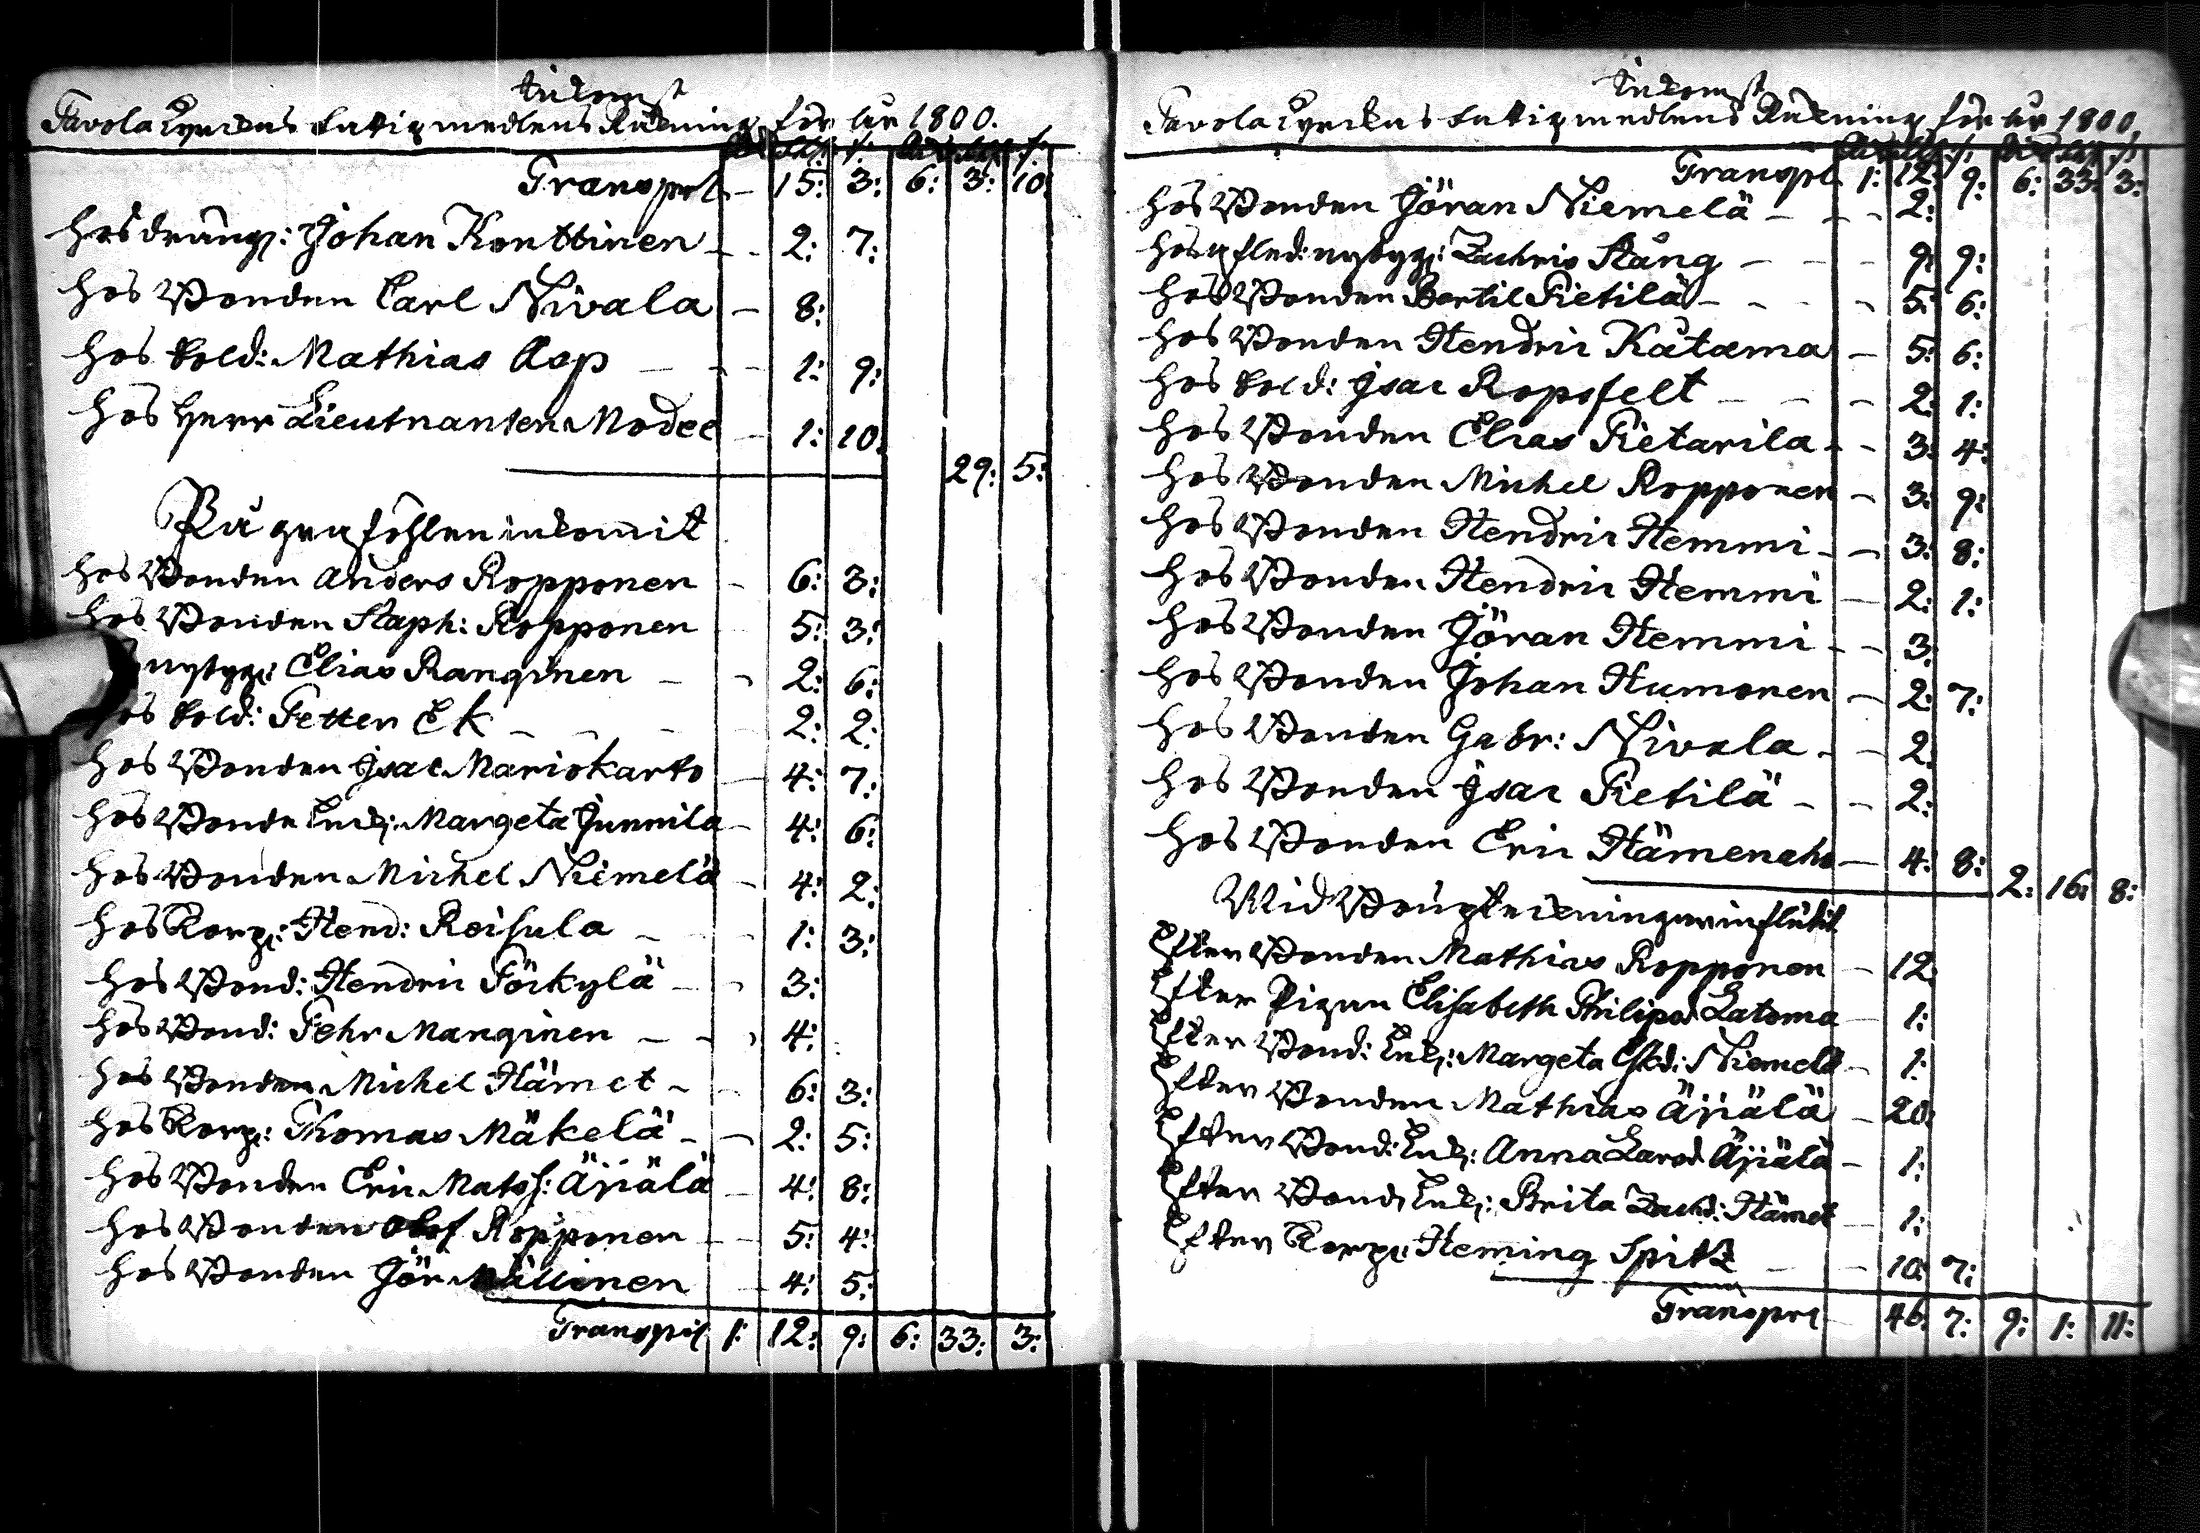 Inkomst
Tavola Kyrckas Fattigmedlens Räkning för år 1800.
Rd Sk: r: Rd Sk: r:
Transport – 15: 3: 6: 3: 10:
hos dräng: Johan Konttinen – 2: 7:
hos Bonden Carl Nivala – 8:
hos Sold: Mathias Asp – 1: 9:
hos Herr Lieutnanten Modee – 1: 10.
29: 5:
På graföhlen inkommit
hos Bonden Anders Ropponen – 6: 3:
hos Bonden Staph: Ropponen 5: 3:
nybygg: Elias Ranginen – 2: 6:
hos Sold: Petter Ek – 2: 2:
hos Bonden Isac Mariokarto – 4: 7:
hos Bonde Enk: Margeta Junnila – 4: 6:
hos Bonden Michel Niemelä – 4: 2:
hos Korp: Hend: Reisula – 1: 3:
hos Bond: Hendric Törkylä – 3:
hos Bond: Pehr Manginen – 4:
hos Bonden Michel Hämet – 6: 3:
hos Korp: Thomas Mäkelä – 2: 5:
hos Bonden Eric Matss: Äijälä – 4: 8:
hos Bonden Olof Ropponen – 5: 4:
hos Bonden Jör Mällinen – 4: 5:
Transport 1: 12: 9: 6: 33: 3:
Inkomst
Tavola Kyrckas Fattigmedlens Räkning för år 1800.
Rd Sk: r: Rd Sk: r:
Transpt. 1: 12: 9: 6: 33: 3:
hos Bonden Jöran Niemelä – 2:
hos afsked: nybygg: Zachris Stång – 9: 9:
hos Bonden Bertil Pietilä – 5: 6:
hos Bonden Hendric Kåtama – 5: 6:
hos Sold: Isac Ropsfelt – 2: 1:
hos Bonden Elias Pietarila – 3: 4:
hos Bonden Michel Ropponen – 3: 9:
hos Bonden Hendric Hemmi – 3: 8:
hos Bonden Hendric Hemmi – 2: 1:
hos Bonden Jöran Hemmi – 3:
hos Bonden Johan Humonen – 2: 7:
hos Bonden Gabr: Nivala – 2:
hos Bonden Isac Pietilä – 2:
hos Bonden Eric Hämenaho – 4: 8:
2: 16: 8:
Wid Bouptekningar influtit
Efter Bonden Mathias Ropponen – 12:
Efter Pigan Elisabeth Philipsd Latoma – 1:
Efter Bond: Enk: Margeta Eskd: Niemelä – 1:
Efter Bonden Mathias Äijälä – 20:
Efter Bond: Enk: Anna Larsd. Äijälä – 1:
Efter Bond: Enk: Brita Zachd: Hämet – 1:
Efter Korp: Heming Spitz – 10: 7:
Transport 46: 7: 9: 1: 11: